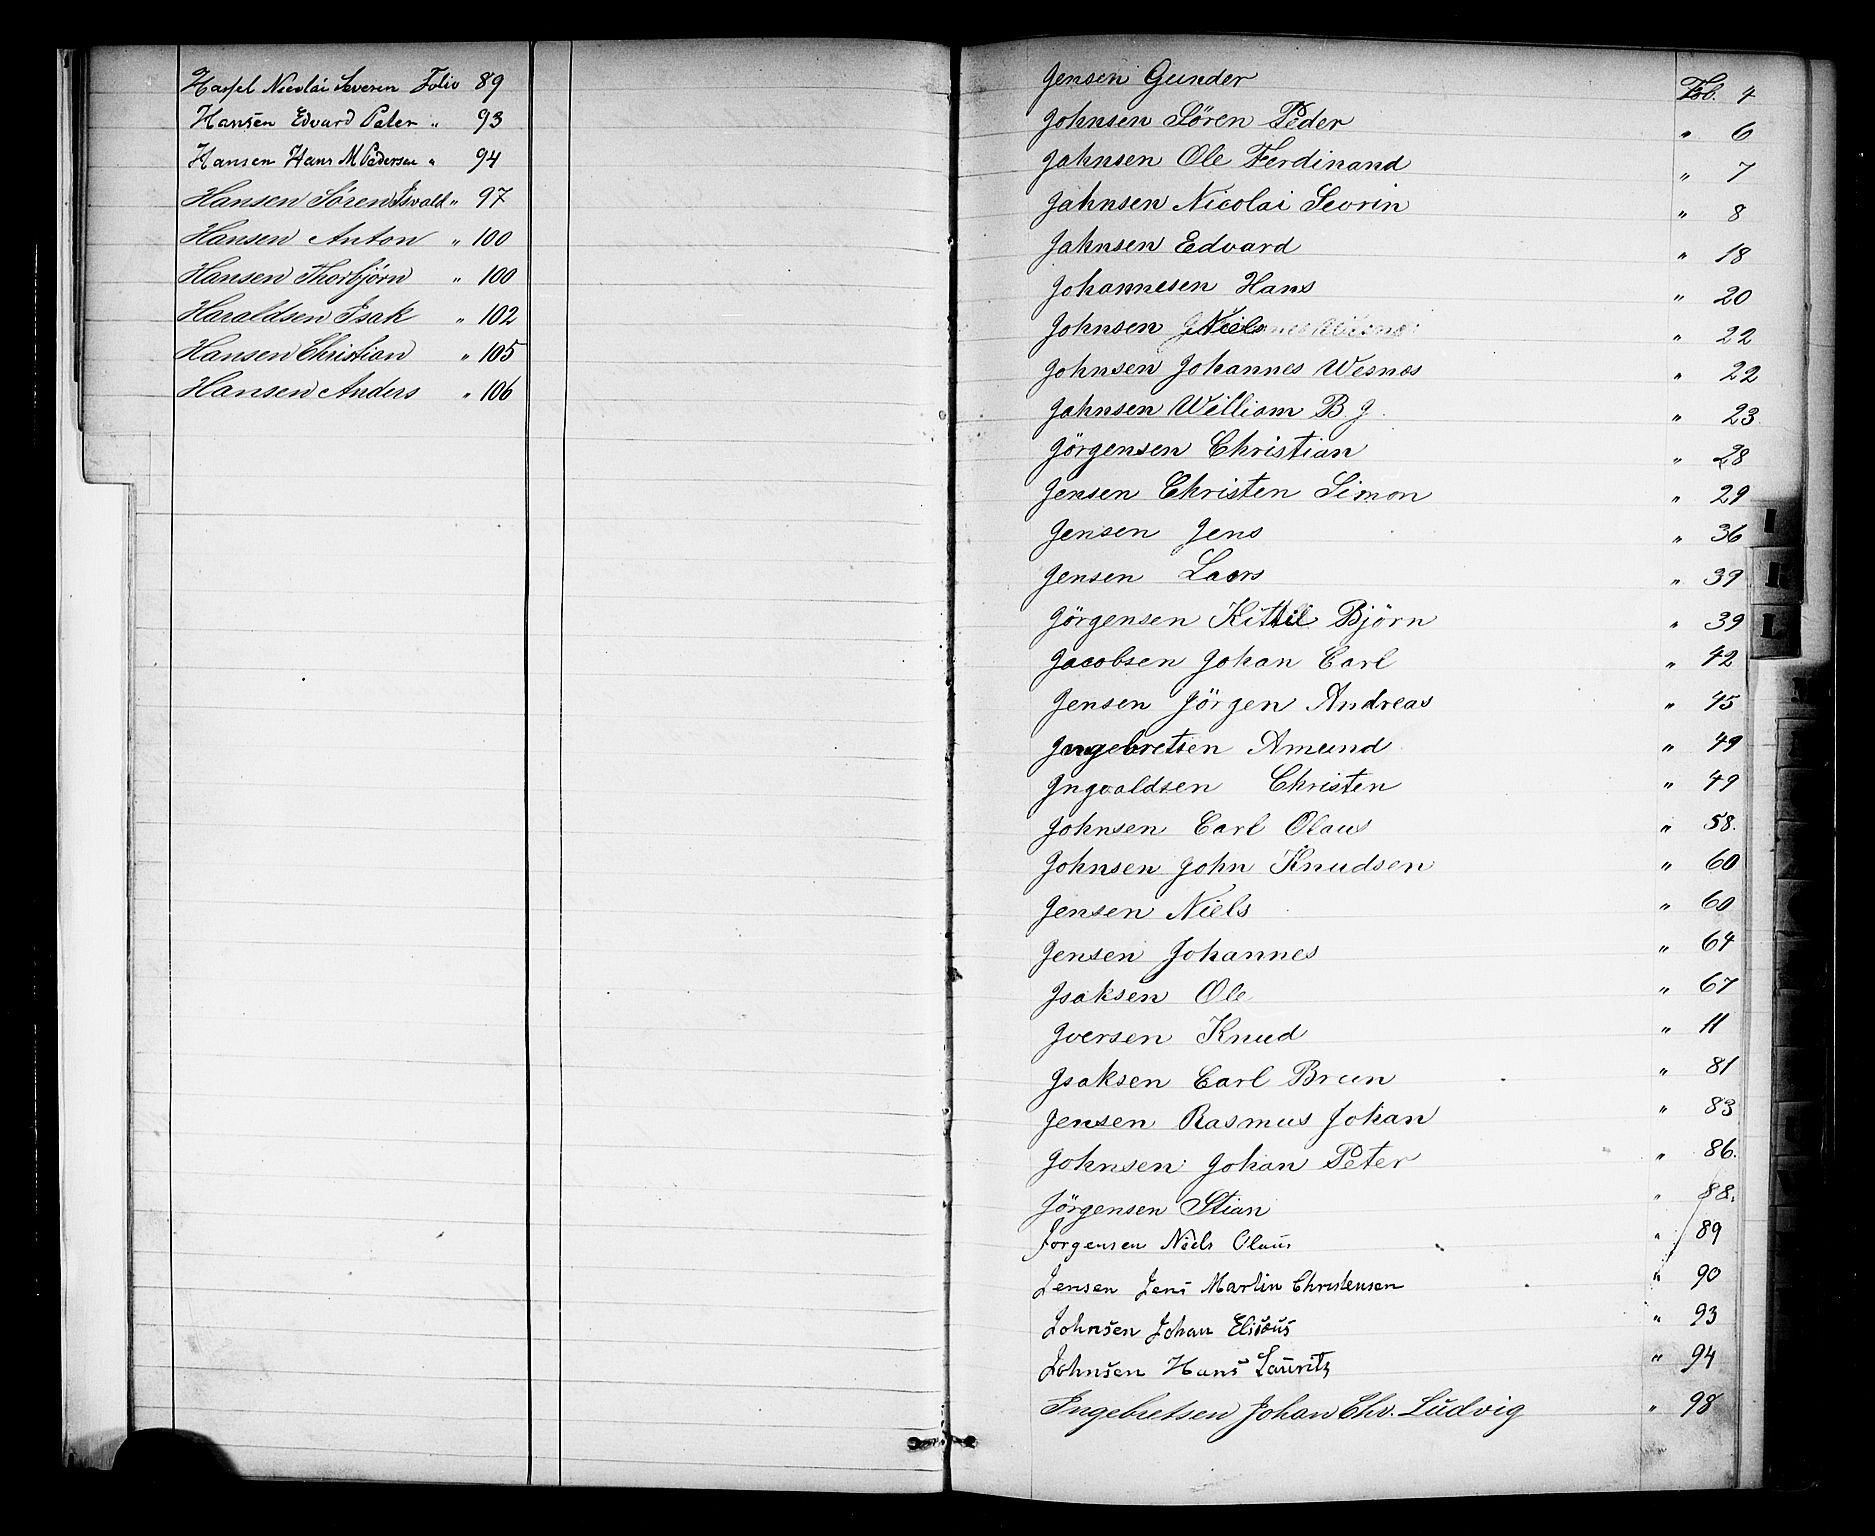 Hassel Nicolai Severin Folio 89
Hansen Edvard Peter „ 93
Hansen Hans M Pedersen „ 94
Hansen Søren Isvald „ 97
Hansen Anton „ 100
Hansen Thorbjørn „ 100
Haraldsen Isak „ 102
Hansen Christian „ 105
Hansen Anders „ 106
Jensen Gunder Fol. 4
Johnsen Sören Peder „ 6
Johnsen Ole Ferdinand „ 7
Jahnsen Nicolai Sevrin „ 8
Jahnsen Edvard „ 18
Johannesen Hans „ 20
Johnsen Niels „ 22
Johnsen Johannes Wesnes „ 22
Jahnsen William B. J. „ 23
Jörgensen Christian „ 28
Jensen Christen Simon „ 29
Jensen Jens „ 36
Jensen Laors „ 39
Jörgensen Kittil Björn „ 39
Jacobsen Johan Carl „ 42
Jensen Jörgen Andreas „ 45
Ingebretsen Amund „ 49
Ingvaldsen Christen „ 49
Johnsen Carl Olaus „ 58.
Johnsen John Knudsen „ 60
Jensen Niels „ 60
Jensen Johannes „ 64
Isaksen Ole „ 67
Iversen Knud „ 11
Isaksen Carl Brun „ 81
Jensen Rasmus Johan „ 83
Johnsen Johan Peter „ 86.
Jörgensen Stian „ 88.
Jorgensen Niels Olaus „ 89
Jensen Jens Martin Christensen „ 90
Johnsen Johan Elisæus „ 93
Johnsen Hans Lauritz „ 94
Ingebretsen Johan Chr. Ludvig „ 98
I
L